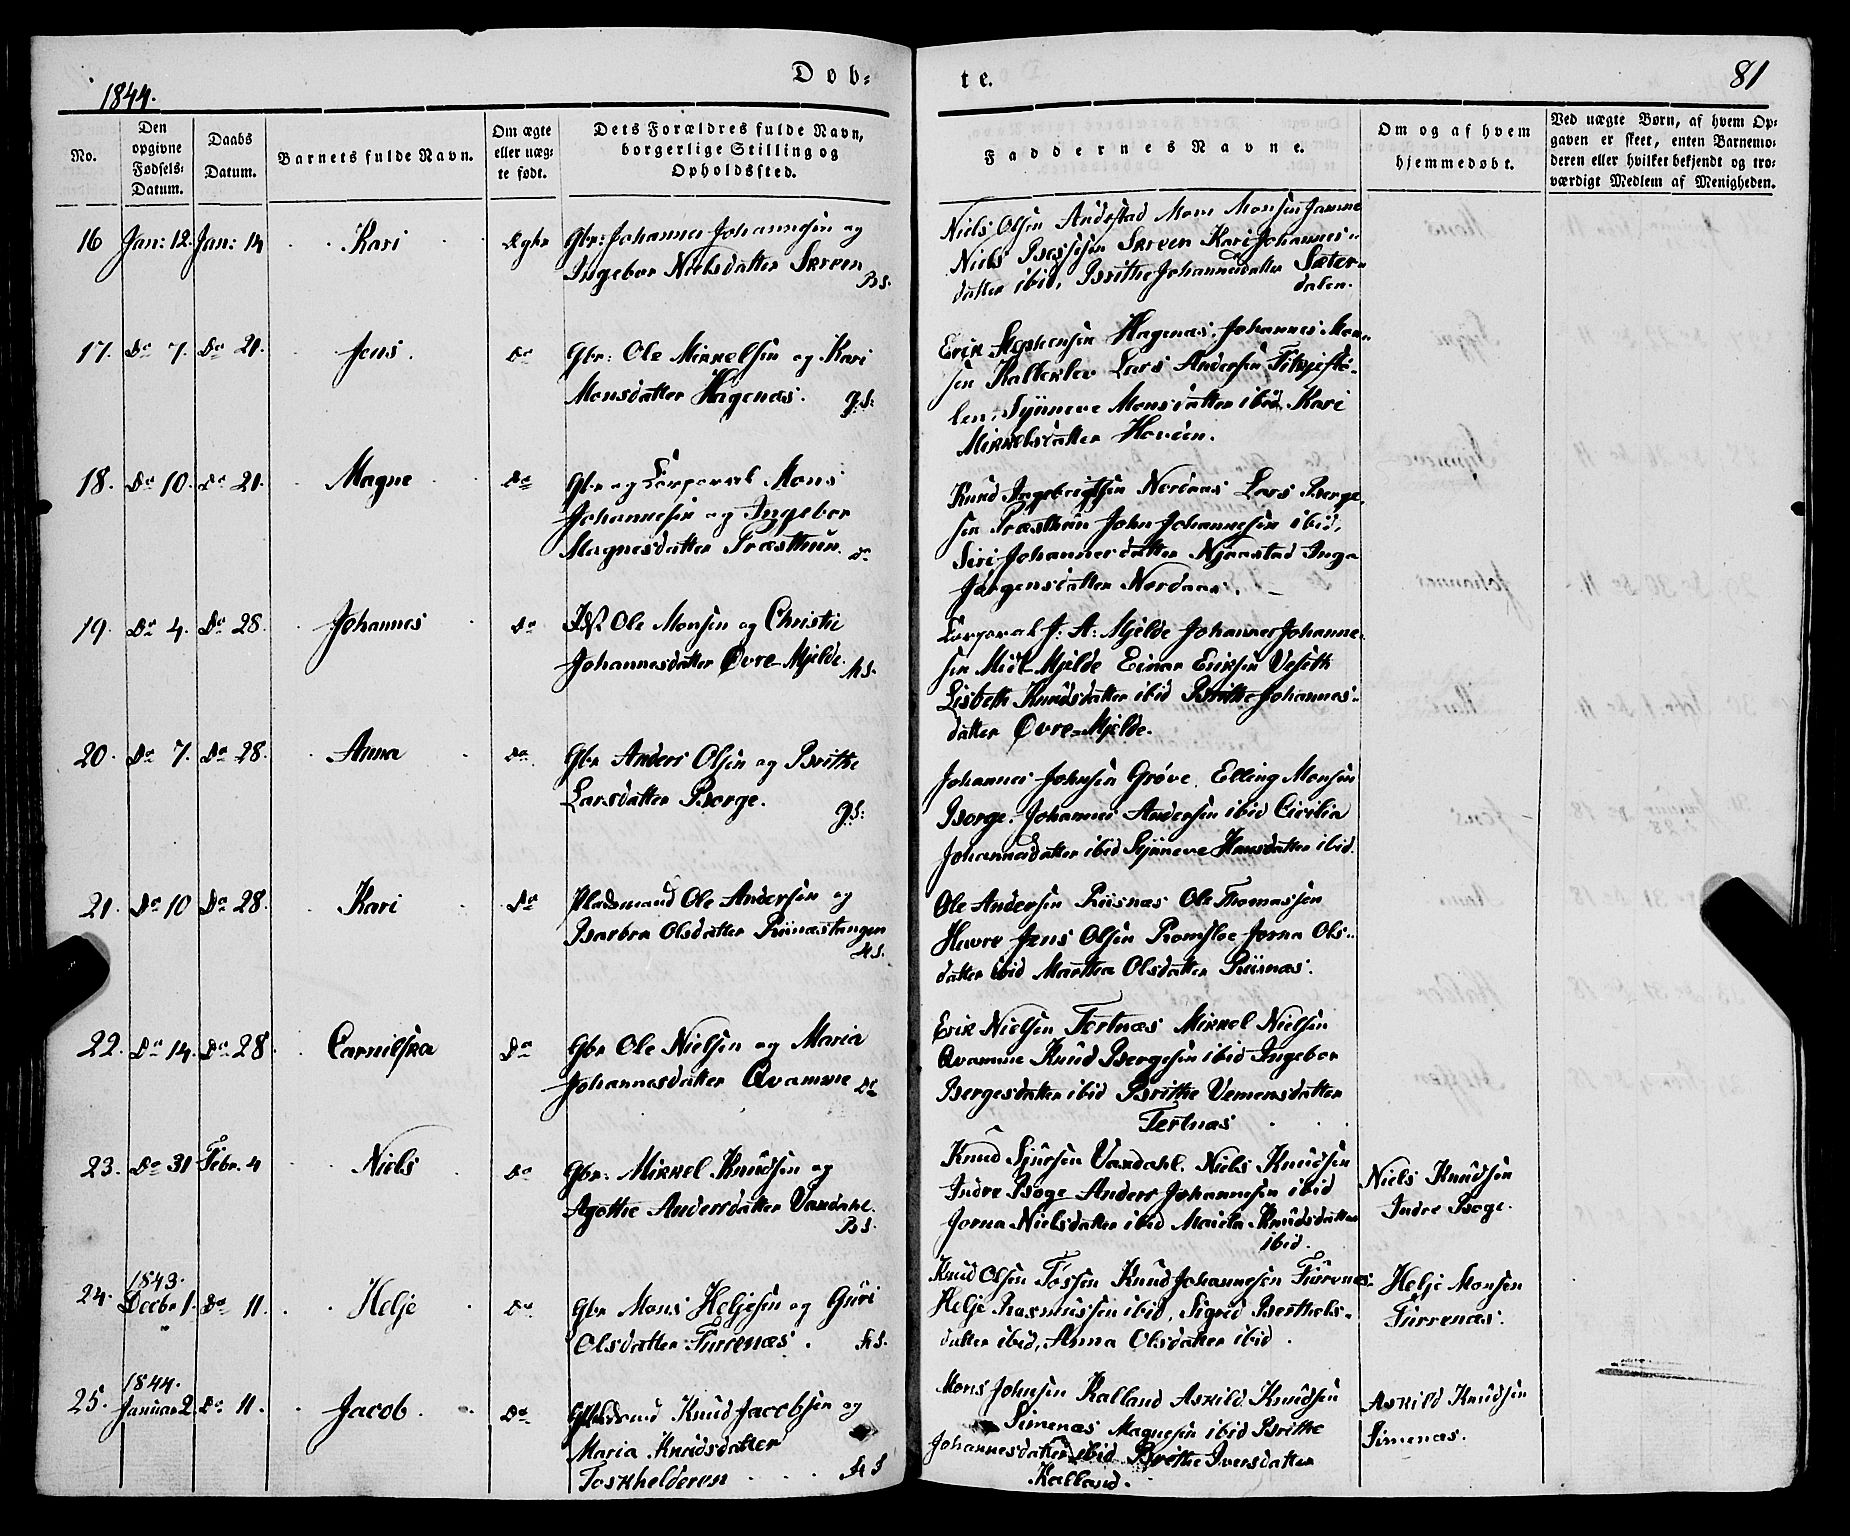 1844.
Døb-
te.
81
No.
Den
opgivne
Fødsels-
Datum.
Daabs
Datum.
Barnets fulde Navn.
Om ægte
eller uæg-
te født.
Dets Forældres fulde Navn,
borgerlige Stilling og
Opholdssted.
Faddernes Navne.
Om og af hvem
hjemmedøbt.
Ved uægte Børn, af hvem Op-
gaven er skeet, enten Barnemo-
deren eller hvilket bekjendt og tro-
værdigt Medlem af Menigheden.
16 Jan: 12. Jan: 14 Kari Ægte Gbr: Johannes Johannesen og
Ingebor Nielsdatter Skreen
B.S.
Niels Olsen Mons Monsen Jamne
Niels Skreen Kari Johannes-
datter ibid, Brithe Johannesdatter Sæter-
dalen.
17. Do 7. Do 21. Jens. Do Gbr: Ole Mikkelsen og Kari
Monsdatter Hagenæs. G.S.
Erik Stephensen Hagenæs, Johannes Mon-
sen Kalleklev Lars Andersen
len, Synneve Monsdatter ibid Kari
Mikkelsdatter
18. Do 10. Do 21. Magne Do Gbr og Corporal Mons
Johannesen og Ingebor
Magnesdatter Præsthun. Do
Knud Ingebrigtsen Nordaas Lars Børge-
sen Præsthun John Johannesen ibid,
Siri Johannesdatter Njaastad Inga
Jørgensdatter Nordaas.
19. Do 4. Do 28. Johannes Do Ole Monsen og Christi
Johannesdatter Øvre-Mjelde. M.S.
Corporal J. A. Mjelde Johannes Johanne-
sen Midt-Mjelde Einar Eriksen Veseth
Lisbeth Knudsdatter ibid Brithe Johannes-
datter Øvre-Mjelde.
20. Do 7. Do 28. Anna Do Gbr Anders Olsen og Brithe
Larsdatter Borge.
G.S.
Johannes Johnsen Grøve. Elling Monsen
Borge. Johannes Andersen ibid Cicilia
Johannesdatter ibid Synneve Hansdatter ibid.
21. Do 10 Do 28. Kari Do Pladsmand Ole Andersen og
Barbra Olsdatter Riisnæstangen
H.S.
Ole Andersen Riisnæs Ole Thomassen
Havre Jens Olsen Romsloe Jorna Ols-
datter ibid Martha Olsdatter Riisnæs.
22. Do 14. Do 28. Carnilska Do Gbr Ole Nielsen og Maria
Johannesdatter Qvamme Do
Erik Nielsen Tertnæs Mikkel Nielsen
Qvamme Knud Børgesen ibid Ingebor
Børgesdatter ibid Brithe Vemensdatter
Tertnæs
23. Do 31 Febr. 4 Niels Do Gbr: Mikkel Knudsen og
Agathe Andersdatter Vaxdahl.
B.S.
Knud Sjursen Vaxdahl. Niels Knudsen
Indre Boge Anders Johannesen ibid
Jorna Nielsdatter ibid Marita Knudsdatter
ibid.
Niels Knudsen
Indre Boge.
24. 1843.
Decbr 1. Do 11. Helje Do Gbr Mons Heljesen og Guri
Olsdatter Furrenæs. H.S.
Knud Olsen Fossen Knud Johannesen Furrenæs
Helje Rasmussen ibid, Sigrid Berthels-
datter ibid, Anna Olsdatter ibid.
Helje Monsen
Furrenæs.
25. 1844.
Januar 2. Do 11. Jacob. Do Knud Jacobsen og
Maria Knudsdatter
Toskhelderen H S
Mons Johnsen Kalland Askild Knudsen
Simenæs Magnesen ibid Brithe
Johannesdatter ibid Brithe Iversdatter
Kalland.
Askild Knudsen
Simenæs.